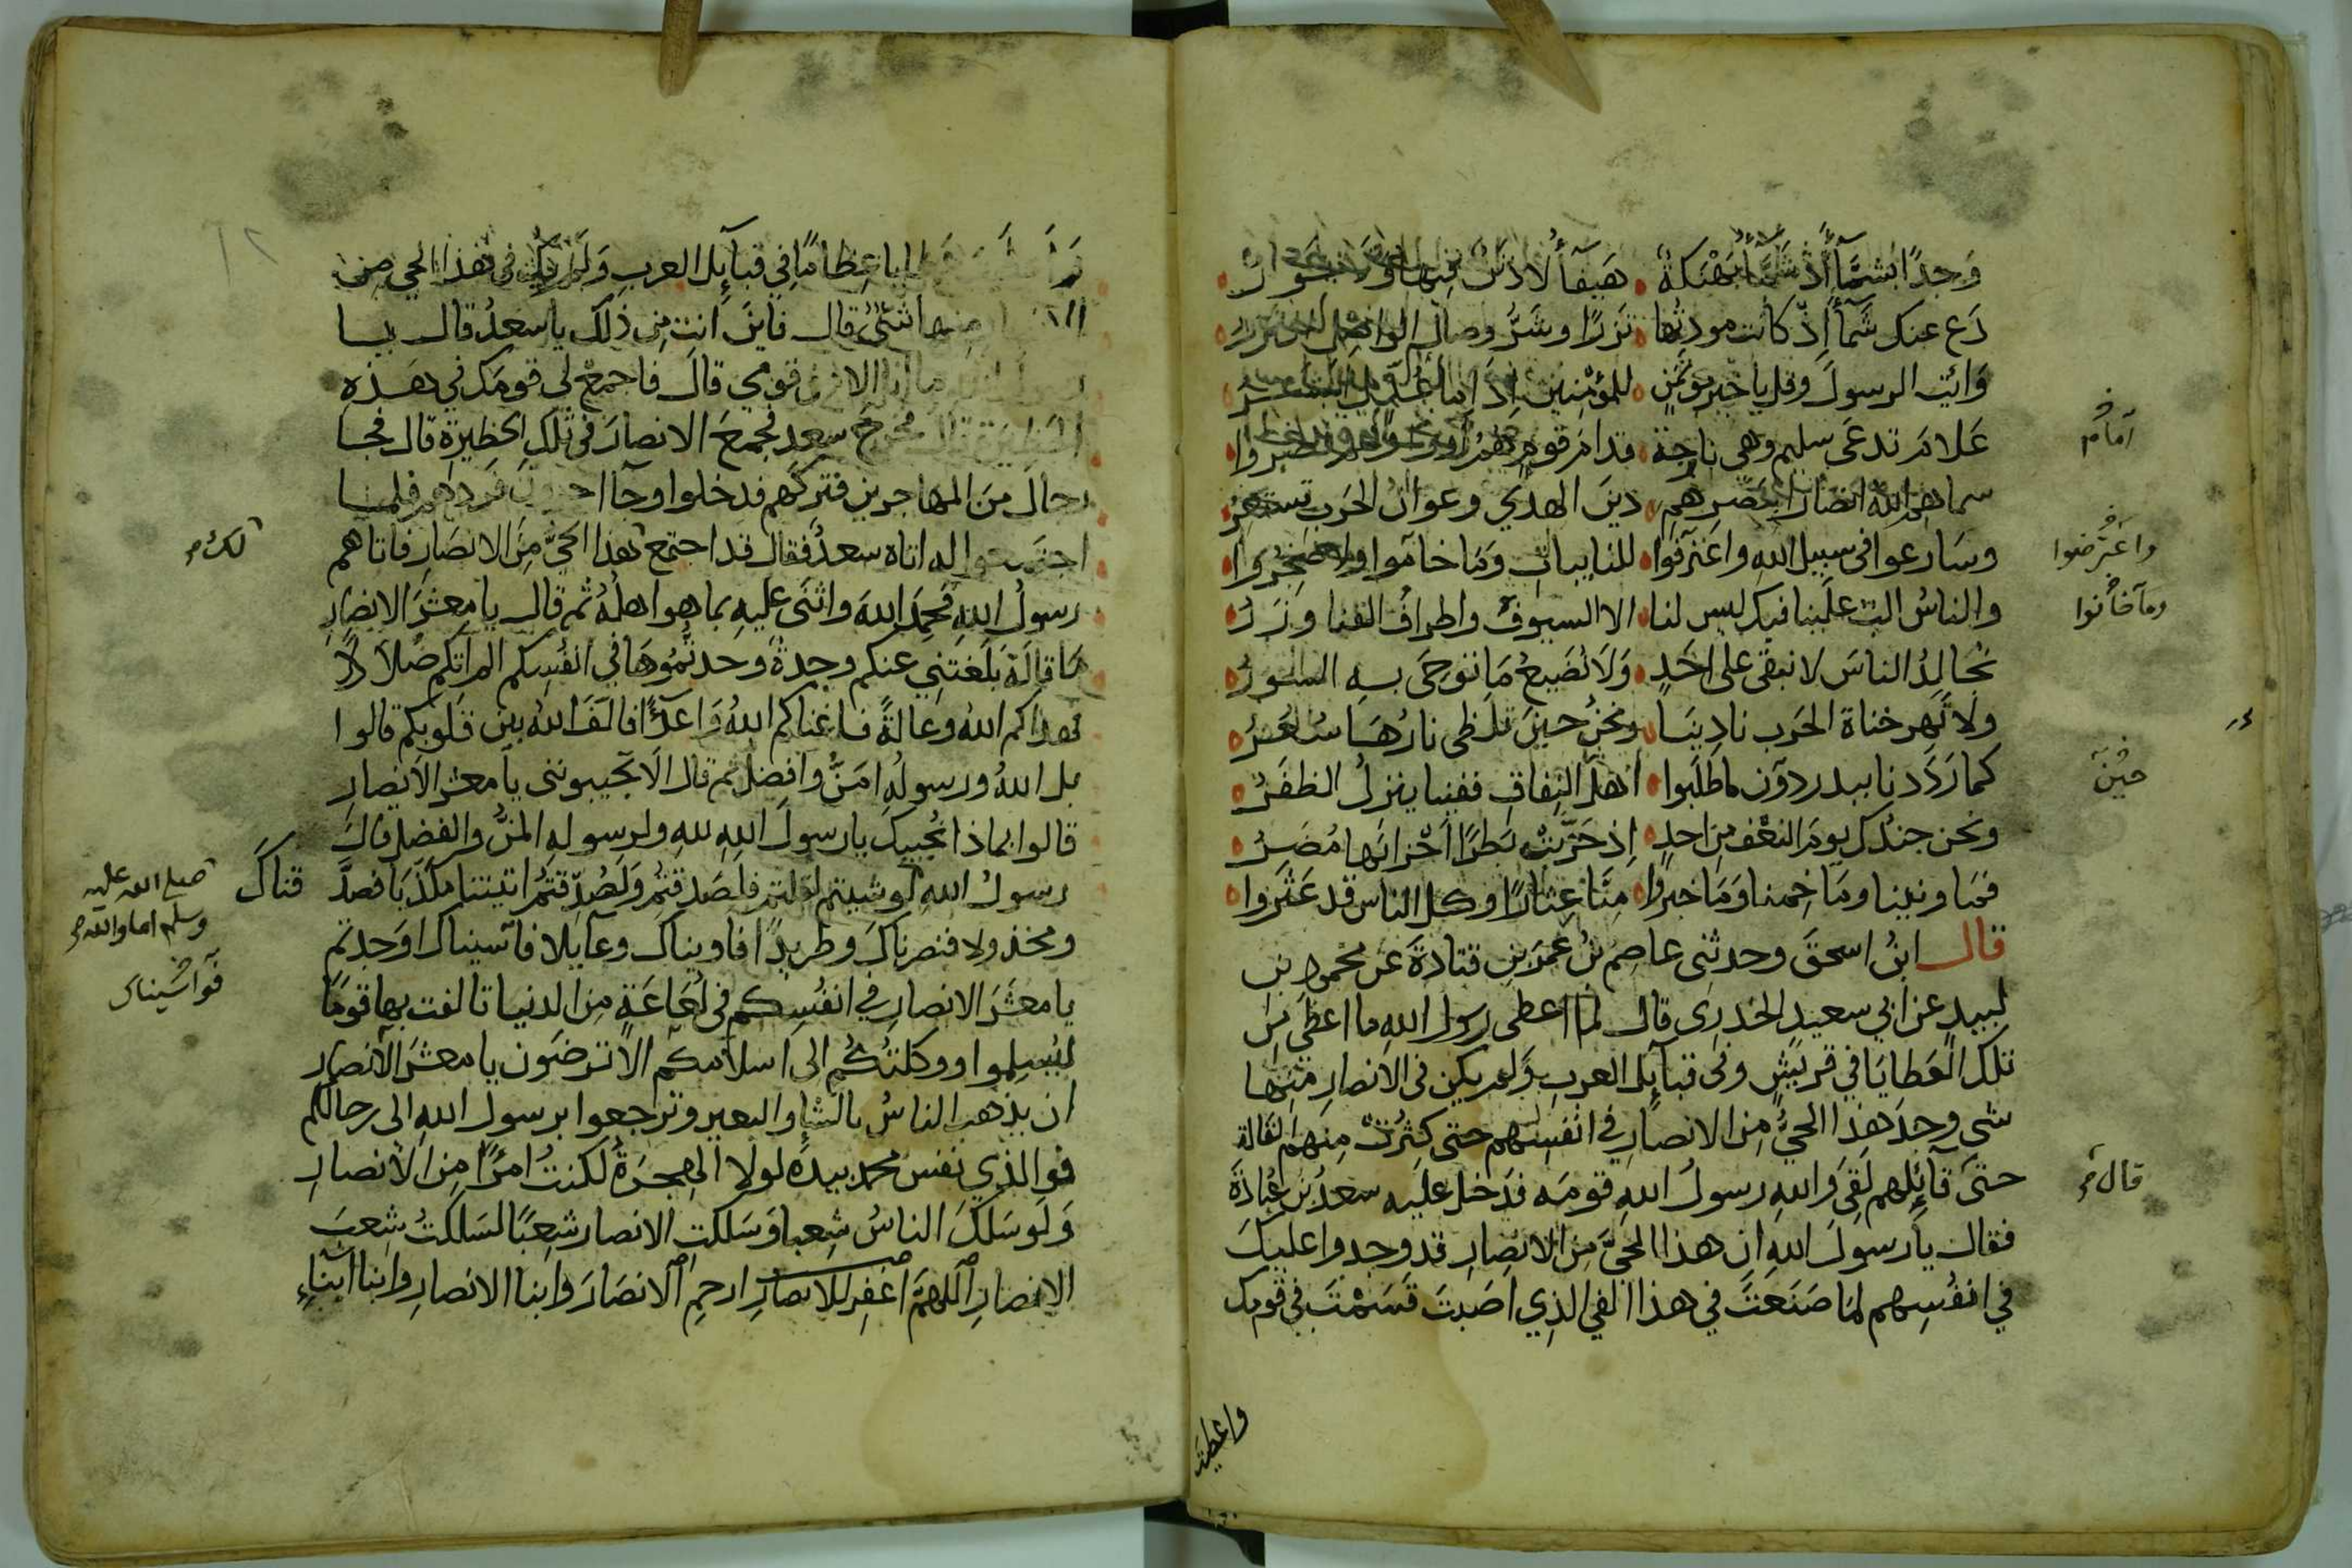 وَجدًا بشمَّآءَ اذ شمّاءُ بَهْنَكةٌ • هَيفآءُ لا دَنَنٌ فيها ولا خَوَرُ •
دَع عنك شَمآءَ اِذ كانت مودتُها • نَزرًا وشَرُّ وصال الواصل النزرُ •
وَائتِ الرسولَ وقل يا خير موتمَنٍ • للمؤمنين اذا ما
عَلامَ تدعَى سليم وهى نازحة • قدام قوم هم اووا وهم نصروا •
سماهم الله انصارا بنصرهم • دينَ الهدي وعوانُ الحَرب تستعرُ •
وسَارعوا فى سبيل الله واعترفوا • للنايبات وَمَا خامَوا وما ضَجروا •
والناسُ الب علينا فيك ليس لنا • الا السيوف واطرافُ القنا وزرُ •
نُجالِدُ الناسَ لا نبقى على احَدٍ • وَلَا نُضيعُ مَا توحَى به السورُ •
ولا تَهر جناة الحَرب نادينَا • ونحنُ حينَ تلظى نارُهَا سُعُرُ •
كما رَدَدنا ببدر دون ما طلَبوا • اهلَ النِفاقِ ففينا ينزلُ الظفَرُ •
ونحن جندك يومَ النعْف من احدٍ • اِذ حَزَّبتْ بَطَرًا احْزابَها مُضَرُ •
فما ونينا ومَا خِمنا وَمَا خبروا • مِنَّا عِثارًا وكل الناس قد عَثَروا •
قال ابنُ اسحقَ وحدثنى عاصم بنُ عمَرَ بنِ قتادةَ عَن محمُود بن
لبيد عن ابي سعيد الخدرى قال لما اعطى رسول الله ما اعطَى من
تلك العَطايَا في قريش وفى قبآئِل العرب وَلم يكن فى الانصار منها
شى وجدَ هذا الحيُّ من الانصار في انفسهم حتى كثُرتْ منهم القالة
حتىَ قآئلهم لَقِىَ وَالله رسولُ اللهِ قومَه فدَخل عليه سعدُ بن عُبادَة
فقال يا رسولَ اللهِ ان هذا الحَيَّ من الانصار قد وجدوا عليك
في انفُسِهم لما صَنَعتَ في هذا الفي الذِي اصَبتَ قسَمْتَ في قومِك
واعطيتَ
امام
واعْترضوا
وما خانوا
حينَ
قال
عطايا عِظامًا فِي قبآئِل العربِ وَلَم يكُ فى هذا الحي من
الانصار منها شَىءٌ قال فاَينَ انت مِن ذلك يا سعدُ قال يا
رسول الله ما انا الا من قومي قالَ فاجمعْ لى قومَك في هَذه
الحظيرة قال فخرج سعد فجمعَ الانصارَ فى تلك الحَظيرة قال فجا
رجالٌ من المهاجرين فتركهم فدخلوا وجآ اخرون فردهم فلما
اجتمعوا له اتاه سعدٌ فقال قد اجتمع هذا الحَيُّ مِنَ الانصَار فاتاهم
رسولُ اللهِ فحمِدَ اللهَ واثنَى عليهِ بما هوا اهلُهُ ثم قال يا معشَرَ الانصارِ
مَا قالَةٌ بَلَغتَنِي عنكم وجدةٌ وجدتُّمُوهَا في انفُسِكم الم اتكم ضُلاّلاً
فهداكم الله وعالةً فاغناكم اللهُ وَاعدآءً فالفَ اللهُ بين قلوبكم قالوا
بل اللهُ ورسولُه امَنُّ وافضلُ ثم قال الَا تُجيبوننى يا معشرَ الانصارِ
قالوا بماذا نُجيبك يا رسولَ اللهِ للهِ ولرسوله المنُّ والفضل قال
رسولُ الله لو شيتم لقلتم فلصَدقتم وَلَصُدِّقتمُ اتيتنا مكذّبًا فصدَّقناكَ
ومخذولا فنصرناكَ وطريدًا فاويناك وعآيلا فآسيناك اوَجدتم
يا معشَرَ الانصارِ في انفسِكم فى لُعَاعَةٍ مِنَ الدنيا تالفت بها قومًا
ليُسلِموا ووكلتُكُم الى اسلامكم الا ترضَون يا معشرَ الانصارِ
ان يذهب الناسُ بالشاءِ والبعير وترجعوا برسول اللهِ الى رحالكم
فوالذي نفس محمد بيده لولا الهجرَةُ لكنتُ امرَءًا من الانصارِ
وَلَو سَلكَ الناسُ شِعبا وَسَلكتِ الانصار شِعبًا لسَلكتُ شِعبَ
الانصارِ اللهمّ اغفِر للانصارِ ارحمِ الانصَارَ وابنا الانصارِ وابنا ابناءِ
لك
صلى الله عليه
وسلم اما والله
فوآسَيناك